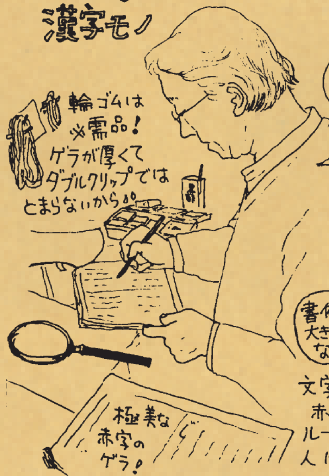 漢字モノ
輪ゴムは
必需品!
ゲラが厚くて
ダブルクリップでは
とまらないから。。
極美な
赤字の
ゲラ!
大き
な
文字
赤
ルー
人